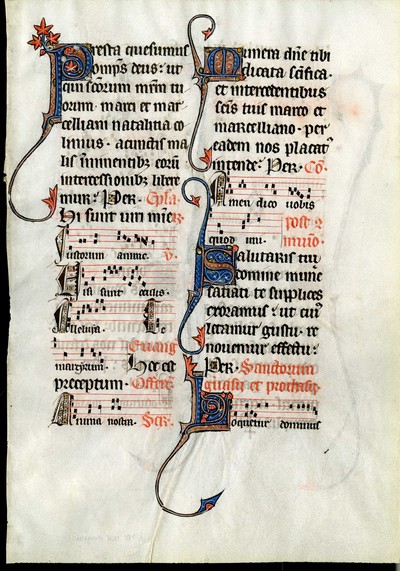 Presta quesumus
omp̄s deus: ut
qui scōrum mr̄m tu
orum marci et mar
celliani natalitia co
limus. a cunctis ma
lis iminentibȝ eorū
intercessionibȝ libere
mur: Per. Epl̄a.
Hii sunt uiri mīe
Iustorum anime. V.
Uisi sunt oculis.
Alleluia.
Euanḡ
martyrum. Hec est
preceptum. Offer̄
Anima nostra. Secr̄.
Munera dn̄e tibi
dicata sc̄ifica.
et intercedentibus
sc̄is tuis marco et
marcelliano. per
eadem nos placat'
intende: Per. Cō.
Amen dico uobis
quod uni. post 9
munio.
Salutaris tui
domine mune
satiati te supplices
exoramus: ut cui'
letamur gustu. re
nouemur effectu:
Per. Sanctorum
geruasii et prothasii.
Loquetur dominus